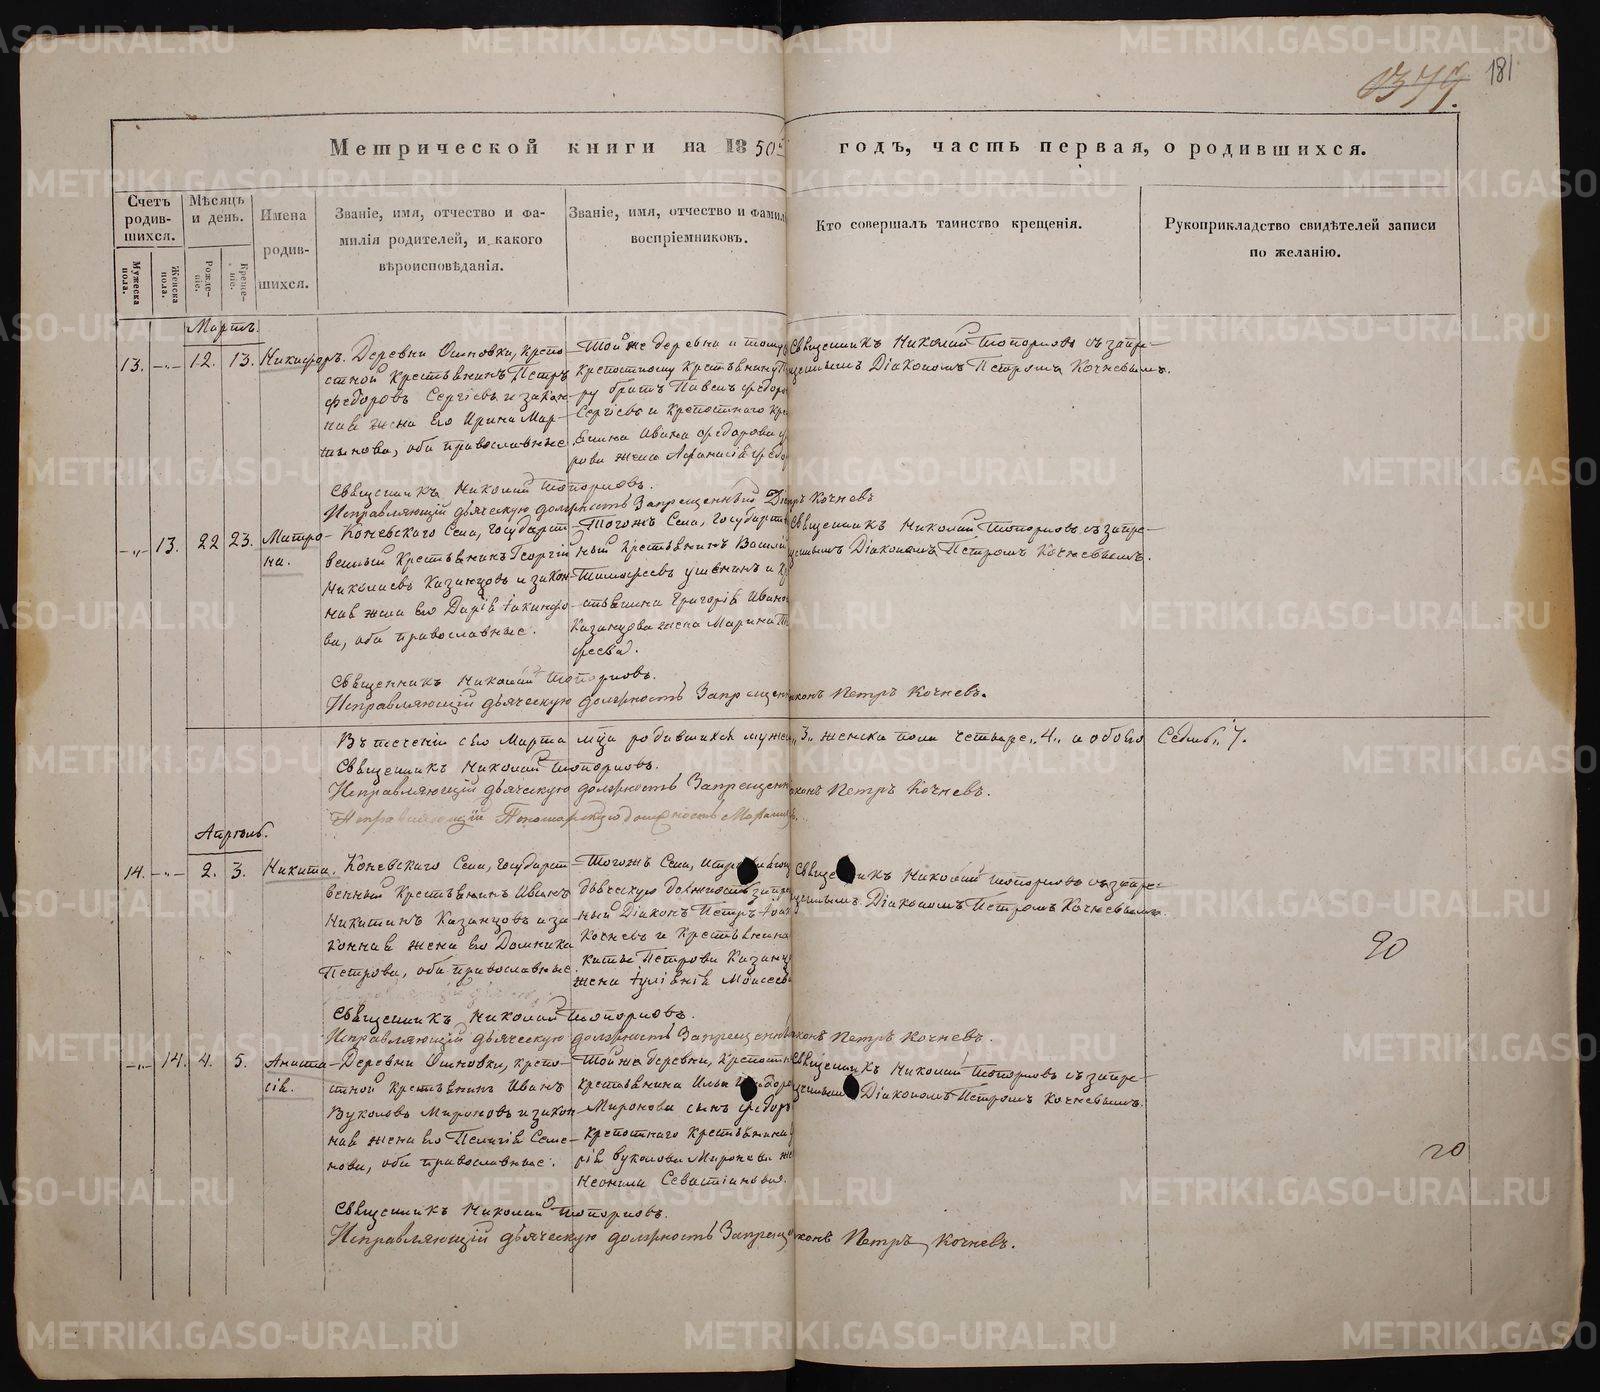 1379.
181
Метрической книги на 1850й годъ, часть первая, о родившихся.
Счетъ родив-шихся.
Мужеска пола.
Женска пола.
Мѣсяцъ и день.
Рожде-ніе.
Креще-ніе.
Имена родив-шихся.
Званіе, имя, отчество и фа-
милія родителей, и какого
вѣроисповѣданія.
Званіе, имя, отчество и фамил
воспріемниковъ.
Кто совершалъ таинство крещенія.
Рукоприкладство свидѣтелей записи
по желанію.
Мартъ.
13. -"- 12. 13. Никифоръ.
Деревни Ошновки, крѣпо-
стной крестьянинъ Петръ
Федоровъ Сергѣевъ и закон-
ная жена его Ирина Мар-
тынова, оба православные
Той же деревни и тому
крепостному крестьянину П
ру братъ Павелъ Федоро
Сергѣевъ и крепостнаго кре
янина Ивана Федорова
рова жена Афанасія Федо
Священникъ Николай Топорковъ съ запре-
щеннымъ Діакономъ Петромъ Кочневымъ.
Священникъ Николай Топорковъ.
Исправляющій дьяческую должность Запрещенный Кочневъ
-"- 13. 22 23. Матро-
на.
Коневскаго Села, государст
венный крестьянинъ Георгій
Николаевъ Казанцовъ и закон-
ная жена его Дарія Іакинфо-
ва, оба православные.
Тогожъ Села, государств
ный крестьянинъ Василій
Тимофеевъ и кр
стьянина Григорія Ивано
Казанцова жена Марина Т
феева.
Священникъ Николай Топорковъ съ запре-
щеннымъ Діакономъ Петромъ Кочневымъ.
Священникъ Николай Топорковъ.
Исправляющій дьяческую должность Запрещен конъ Петръ Кочневъ.
Въ теченіи сего Марта мца родившихся мужес "3" женска пола четыре "4" и обоего Седмь "7.
Священникъ Николай Топорковъ.
Исправляющій дьяческую должность Запрещен конъ Петръ Кочневъ.
Исправляющій Пономарскую должность
Апрель.
14. -"- 2. 3. Никита.
Коневскаго Села, государст
венный крестьянинъ Иванъ
Никитинъ Казанцовъ и за
конная жена его Домника
Петрова, оба православные.
Тогожъ Села,
дьяческую должность запре
ный Діаконъ Петръ
Кочневъ и крестьянина
киты Петрова Казанц
жена Іуліанія Моисеев
Священникъ Николай Топорковъ съ запре-
щеннымъ Діакономъ Петромъ Кочневымъ.
20
Священникъ Николай Топорковъ.
Исправляющій дьяческую должность Запрещенны конъ Петръ Кочневъ.
-"- 14. 4. 5. Анаста
сія.
Деревни Ошновки, крѣпо-
стной крестьянинъ Иванъ
Вуколовъ Мироновъ и закон
ная жена его Пелагія Семе-
нова, оба православные.
Той же деревни, крепостн
крестьянина Ильи Федоро
Миронова сынъ Федоръ
крепостнаго крестьянина
рія Вуколова Миронова же
Неонила Севастіанова.
Священникъ Николай Топорковъ съ запре-
щеннымъ Діакономъ Петромъ Кочневымъ.
20
Священникъ Николай Топорковъ.
Исправляющій дьяческую должность Запрещ конъ Петръ Кочневъ.